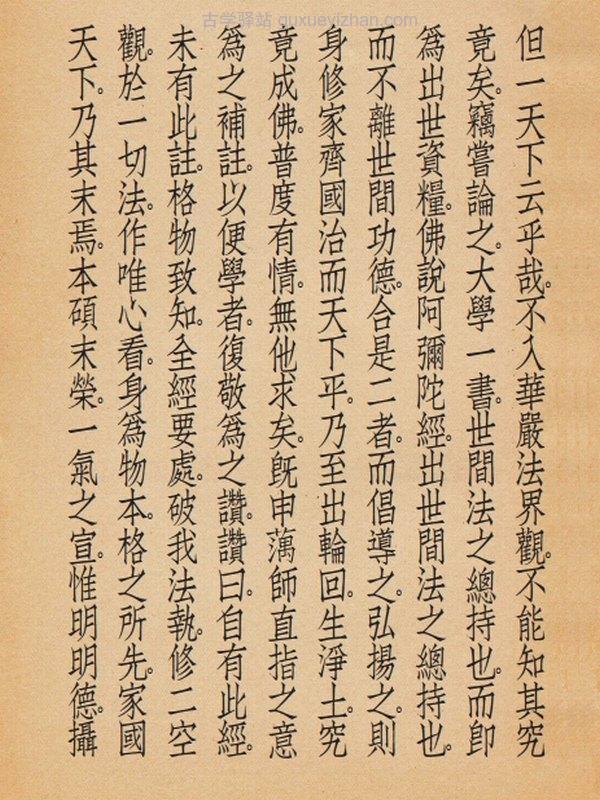 古学驿站 guxueyizhan.com
但一天下云乎哉。不入華嚴法界觀。不能知其究
竟矣。竊嘗論之。大學一書。世間法之總持也。而卽
爲出世資糧。佛說阿彌陀經。出世間法之總持也。
而不離世間功德。合是二者。而倡導之。弘揚之。則
身修家齊國治而天下平。乃至出輪回。生淨土。究
竟成佛。普度有情。無他求矣。旣申蕅師直指之意
爲之補註。以便學者。復敬爲之讚。讚曰。自有此經。
未有此註。格物致知。全經要處。破我法執。修二空
觀。於一切法。作唯心看。身爲物本。格之所先。家國
天下。乃其末焉。本碩末榮。一氣之宣。惟明明德。攝